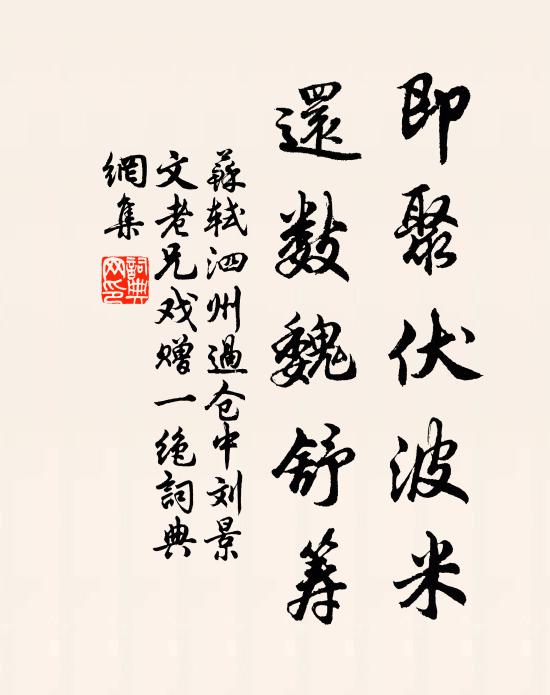 即聚伏波米
還數魏舒筹
蘇轼泗州過仓中刘景
文老兄戏赠一绝詞典
網集
詞典网印